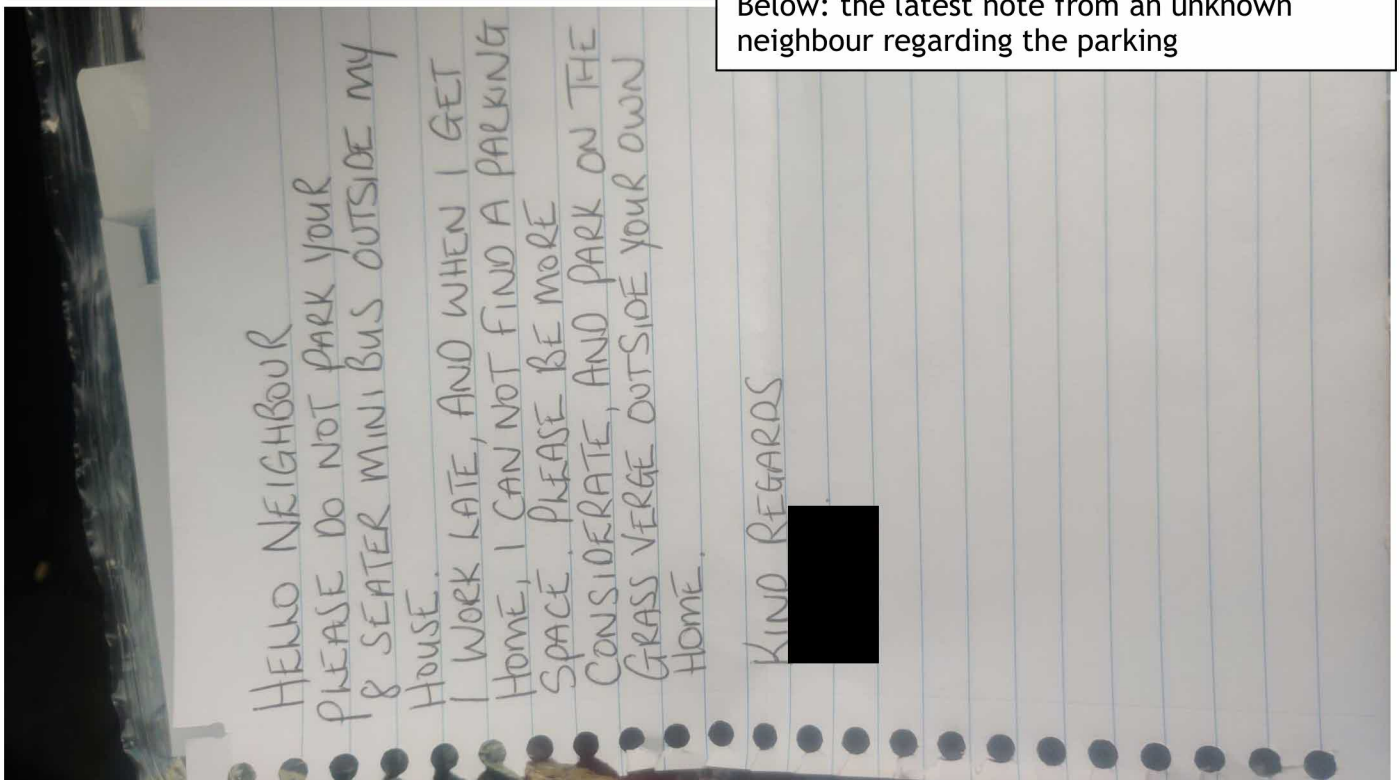 Below: the latest note from an unknown
neighbour regarding the parking
HELLO NEIGHBOUR
PLEASE DO NOT PARK YOUR
8 SEATER MINI BUS OUTSIDE MY
HOUSE.
I WORK LATE, AND WHEN I GET
HOME, I CAN NOT FIND A PARKING
SPACE. PLEASE BE MORE
CONSIDERATE, AND PARK ON THE
GRASS VERGE OUTSIDE YOUR OWN
HOME.
KIND REGARDS